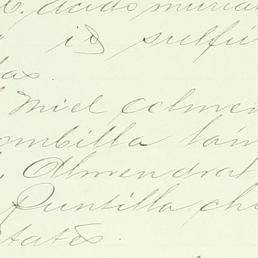 ácido muriá
" id sulfú
tas.
Miel almen
ombilla lán
Almendrat
Puntilla chi
tates.